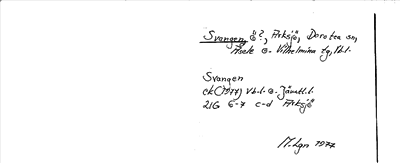 Svangen, ö?, Arksjö, Dorotea sn,
Åsele o. Vilhelmina tg, Vbl.
Svangen
ck(1977) Vb.l. o. Jämtl.l.
21G 6-7 c-d Arksjö
M. Lgn 1977